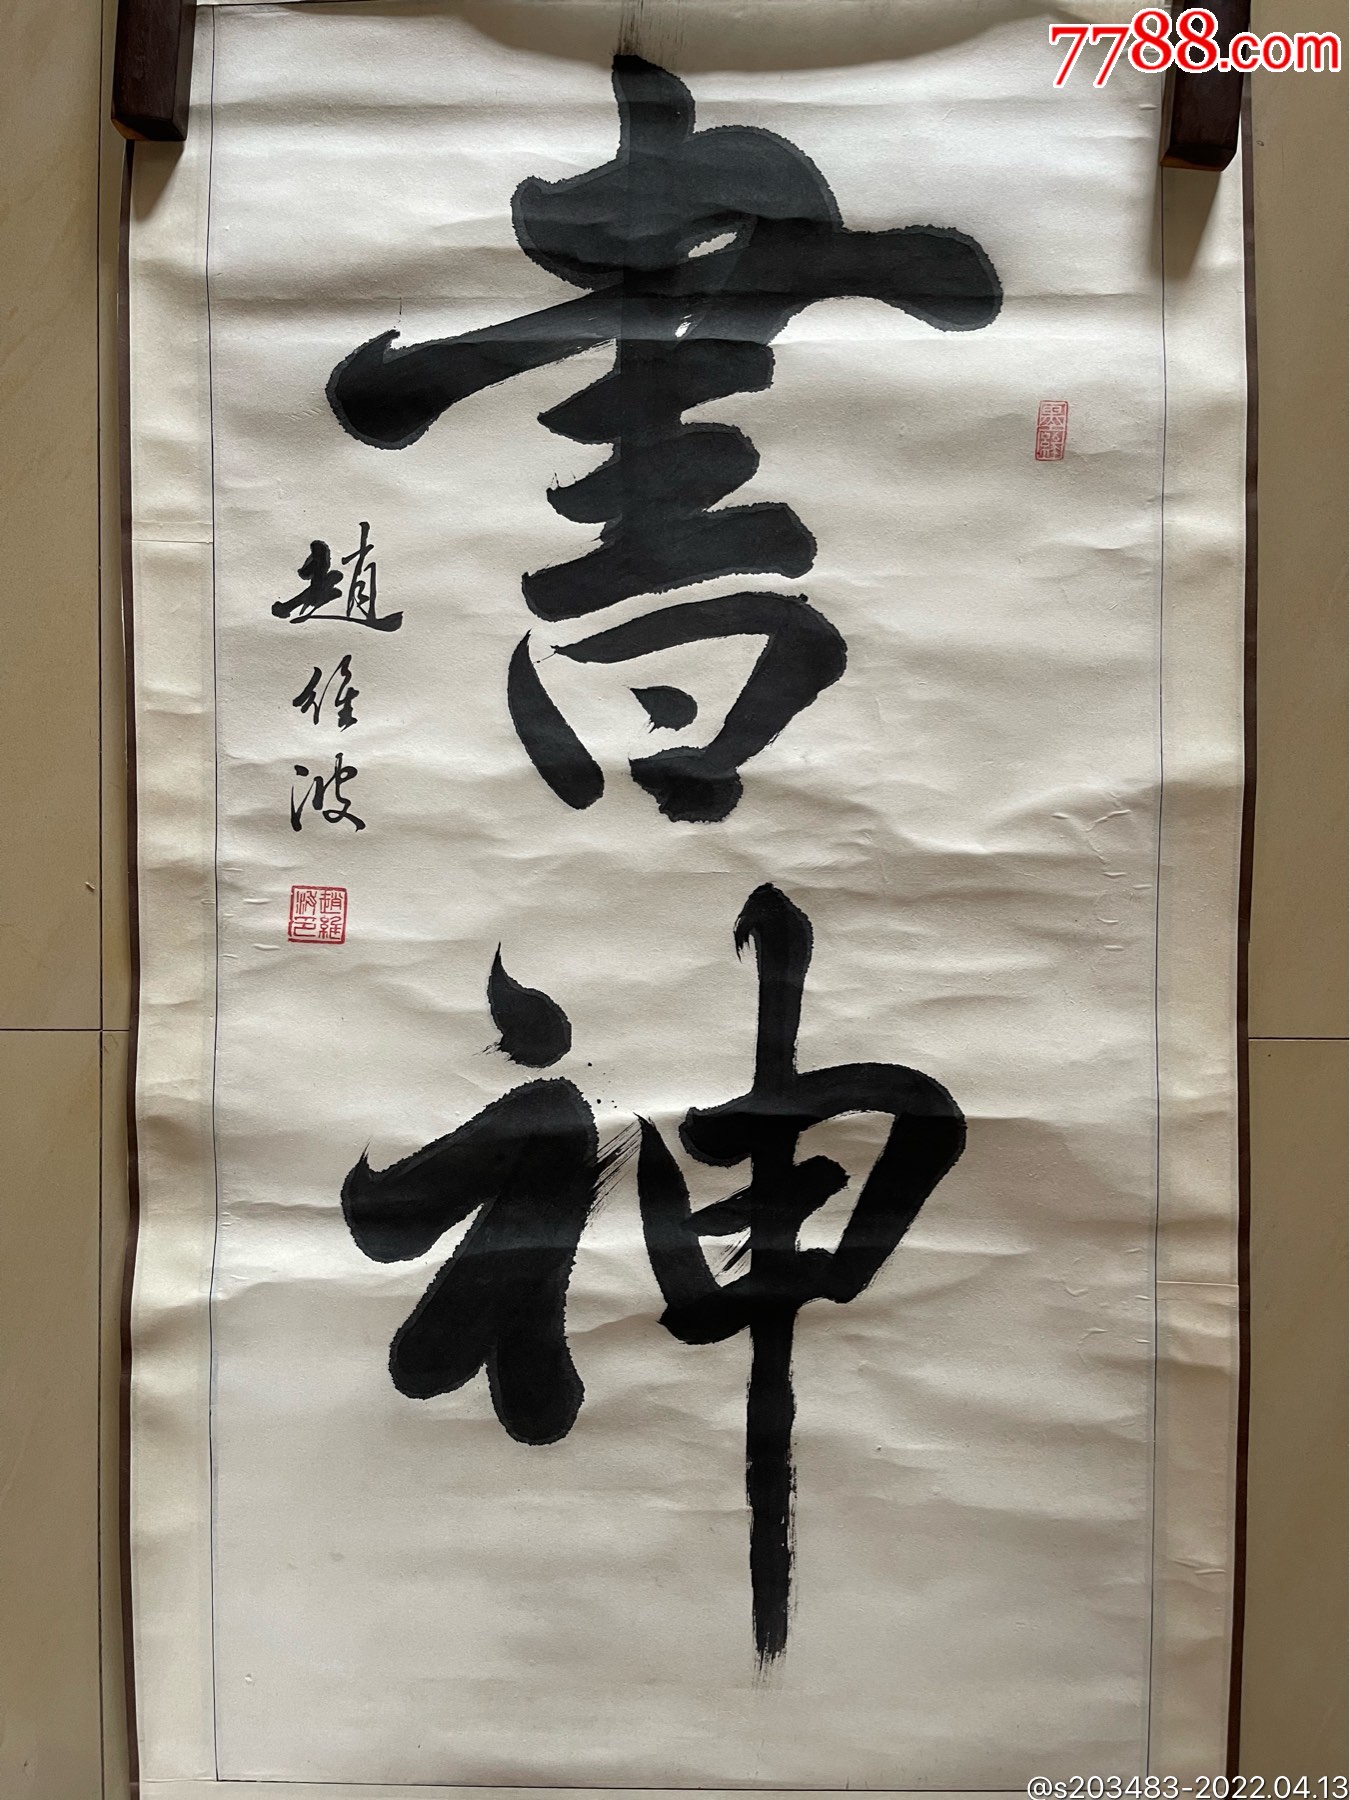 7788.com
書神
趙維波
趙維
波印
墨緣
@s203483-2022.04.13